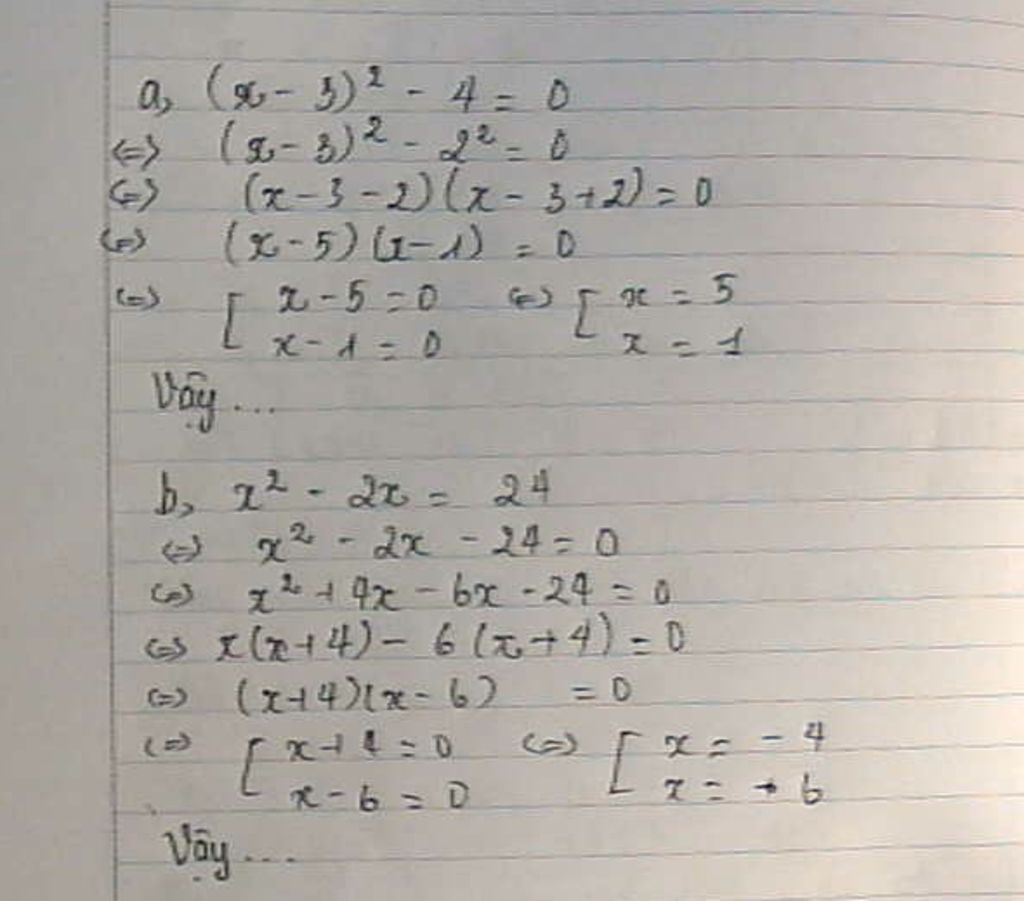 a, (x - 3)² - 4 = 0
<=> (x - 3)² - 2² = 0
<=> (x - 3 - 2)(x - 3 + 2) = 0
<=> (x - 5)(x - 1) = 0
<=> [ x - 5 = 0 <=> [ x = 5
x - 1 = 0 x = 1
Vậy ...
b, x² - 2x = 24
<=> x² - 2x - 24 = 0
<=> x² + 4x - 6x - 24 = 0
<=> x(x + 4) - 6(x + 4) = 0
<=> (x + 4)(x - 6) = 0
<=> [ x + 4 = 0 <=> [ x = - 4
x - 6 = 0 x = + 6
Vậy ....